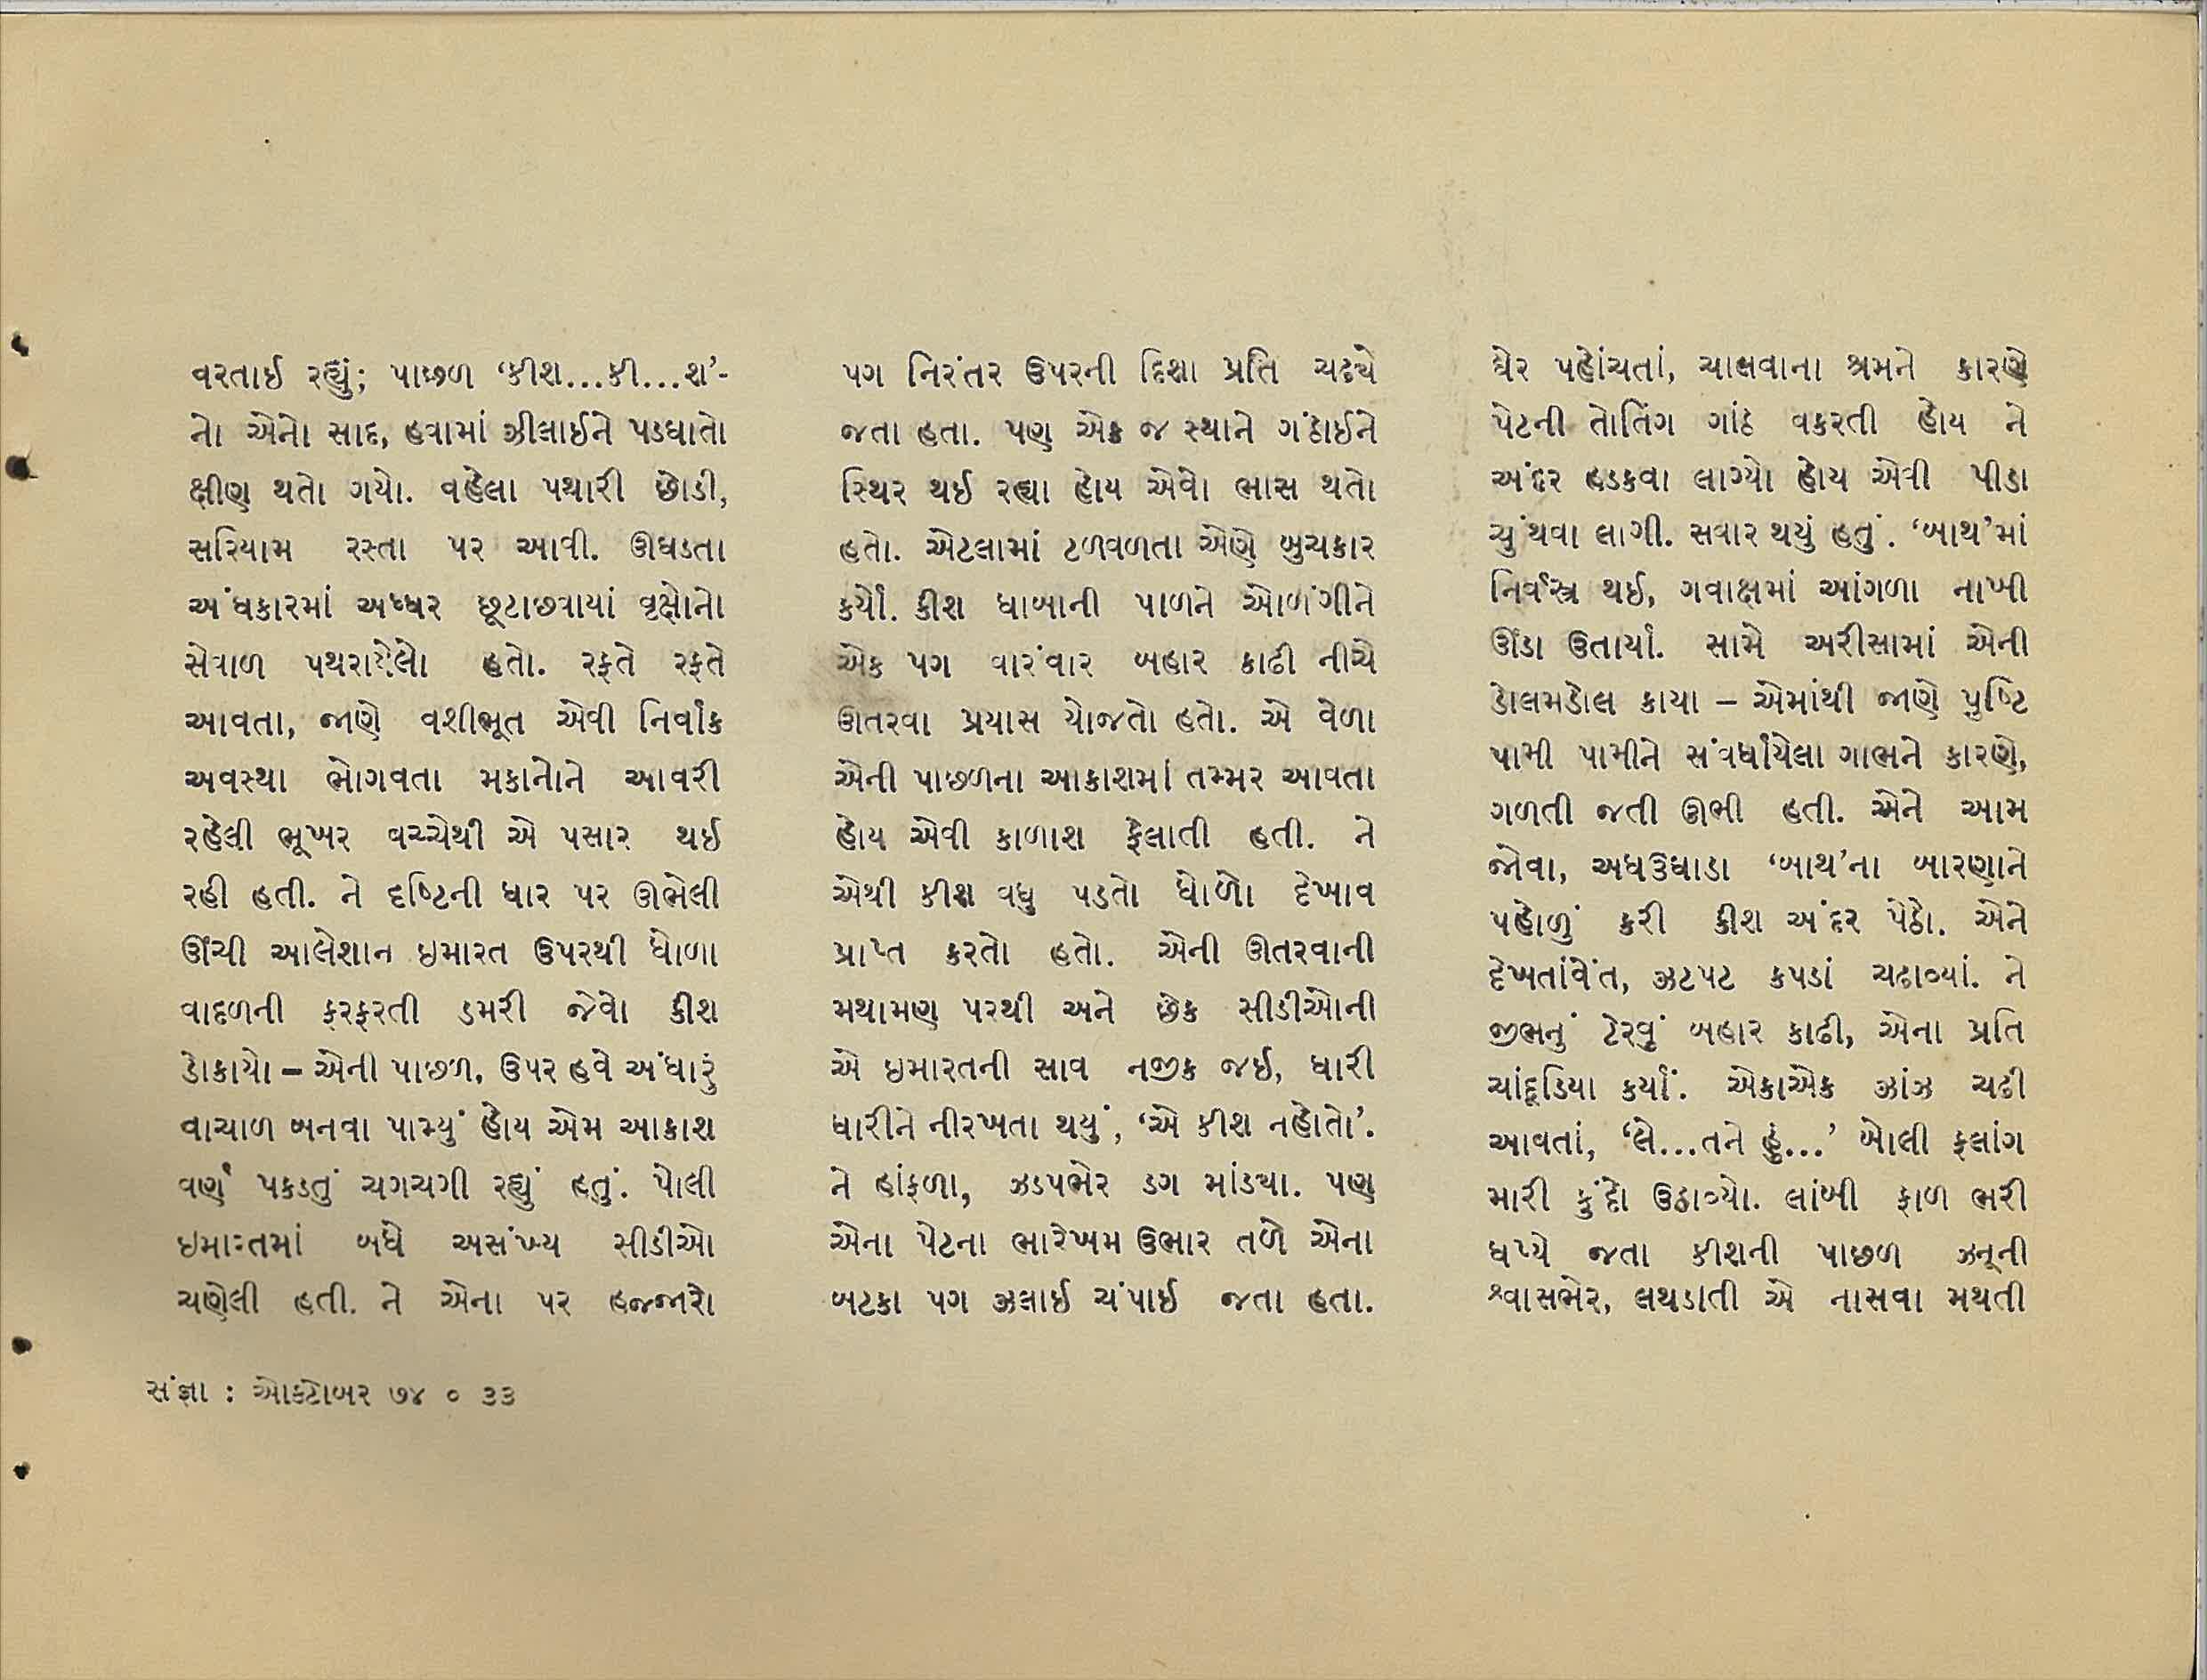 વરતાઈ રહ્યું; પાછળ ‘કીશ...કી...શ’-
નો એનો સાદ, હવામાં ઝીલાઈને પડઘાતો
ક્ષીણ થતો ગયો. વહેલા પથારી છોડી,
સરિયામ રસ્તા પર આવી. ઊઘડતા
અંધકારમાં અધ્ધર છૂટાછવાયાં વૃક્ષોનો
સેવાળ પથરાયેલો હતો. રફતે રફતે
આવતા, જાણે વશીભૂત એવી નિર્વાક
અવસ્થા ભોગવતા મકાનોને આવરી
રહેલી ભૂખર વચ્ચેથી એ પસાર થઈ
રહી હતી. ને દૃષ્ટિની ધાર પર ઊભેલી
ઊંચી આલેશાન ઇમારત ઉપરથી ધોળા
વાદળની ફરફરતી ડમરી જેવો કીશ
ડોકાયો – એની પાછળ, ઉપર હવે અંધારું
વાચાળ બનવા પામ્યું હોય એમ આકાશ
વર્ણ પકડતું ચગચગી રહ્યું હતું. પોલી
ઇમારતમાં બધે અસંખ્ય સીડીઓ
ચણેલી હતી. ને એના પર હજ્જારો
પગ નિરંતર ઉપરની દિશા પ્રતિ ચઢ્યે
જતા હતા. પણ એક જ સ્થાને ગંઠાઈને
સ્થિર થઈ રહ્યા હોય એવો ભાસ થતો
હતો. એટલામાં ટળવળતા એણે બુચકાર
કર્યો. કીશ ધાબાની પાળને ઓળંગીને
એક પગ વારંવાર બહાર કાઢી નીચે
ઊતરવા પ્રયાસ યોજતો હતો. એ વેળા
એની પાછળના આકાશમાં તમ્મર આવતા
હોય એવી કાળાશ ફેલાતી હતી. ને
એથી કીશ વધુ પડતો ધોળો દેખાવ
પ્રાપ્ત કરતો હતો. એની ઊતરવાની
મથામણ પરથી અને છેક સીડીઓની
એ ઇમારતની સાવ નજીક જઈ, ધારી
ધારીને નીરખતા થયું, ‘એ કીશ નહોતો’.
ને હાંફળા, ઝડપભેર ડગ માંડ્યા. પણ
એના પેટના ભારેખમ ઉભાર તળે એના
બટકા પગ ઝલાઈ ચંપાઈ જતા હતા.
ઘેર પહોંચતાં, ચાલવાના શ્રમને કારણે
પેટની તોતિંગ ગાંઠ વકરતી હોય ને
અંદર હડકવા લાગ્યો હોય એવી પીડા
ચુંથવા લાગી. સવાર થયું હતું. ‘બાથ’માં
નિર્વસ્ત્ર થઈ, ગવાક્ષમાં આંગળા નાખી
ઊંડા ઉતાર્યાં. સામે અરીસામાં એની
ડોલમડોલ કાયા – એમાંથી જાણે પુષ્ટિ
પામી પામીને સંવર્ધાયેલા ગાભને કારણે,
ગળતી જતી ઊભી હતી. એને આમ
જોવા, અધઉઘાડા ‘બાથ’ના બારણાને
પહોળું કરી કીશ અંદર પેઠો. એને
દેખતાંવેંત, ઝટપટ કપડાં ચઢાવ્યાં. ને
જીભનું ટેરવું બહાર કાઢી, એના પ્રતિ
ચાંદૂડિયા કર્યાં. એકાએક ઝાંઝ ચઢી
આવતાં, ‘લે...તને હું...’ બોલી ફલાંગ
મારી કુંદો ઉઠાવ્યો. લાંબી ફાળ ભરી
ધપ્યે જતા કીશની પાછળ ઝનૂની
શ્વાસભેર, લથડાતી એ નાસવા મથતી
સંજ્ઞા : ઓક્ટોબર ૭૪ ૦ ૩૩